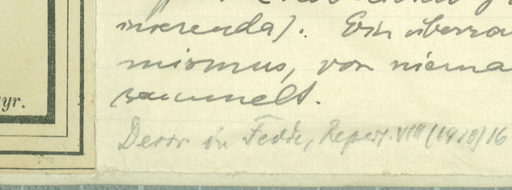 inserenda). Ein überra
mismus, von niema
sammelt.
yr.
Descr in Fedde, Repert. VIII (1910) 16